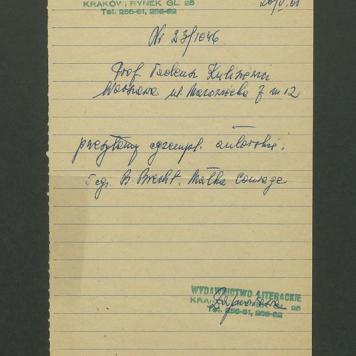 KRAKÓW, RYNEK GL. 25
Tel. 256-61, 256-62
Nr 23/1046
Prof. Tadeusz Kulisiewicz
Warszawa ul. m 12
przesyłamy egzempl. autorskie.
5 egz. B. Brecht. Matka Courage
WYDAWNICTWO LITERACKIE
KRAKÓW, RYNEK GL. 25
Tel. 256-61, 256-62